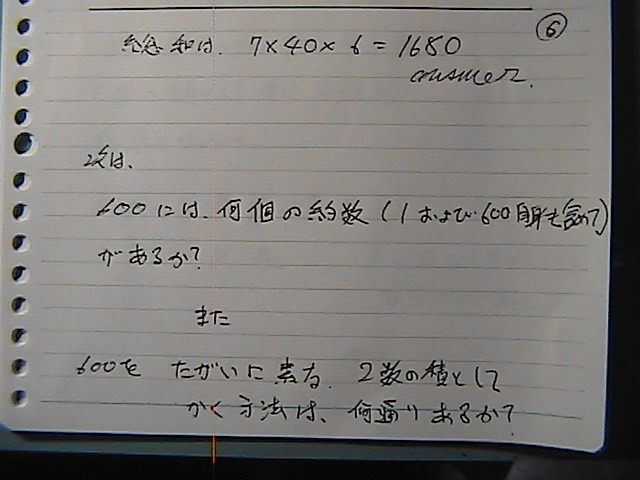 ⑥
総和は、 7×40×6=1680
answer.
次は、
600には、何個の約数(1および600自身も含めて)
があるか?
また
600を たがいに素な 2数の積として
かく方法は、何通りあるか?